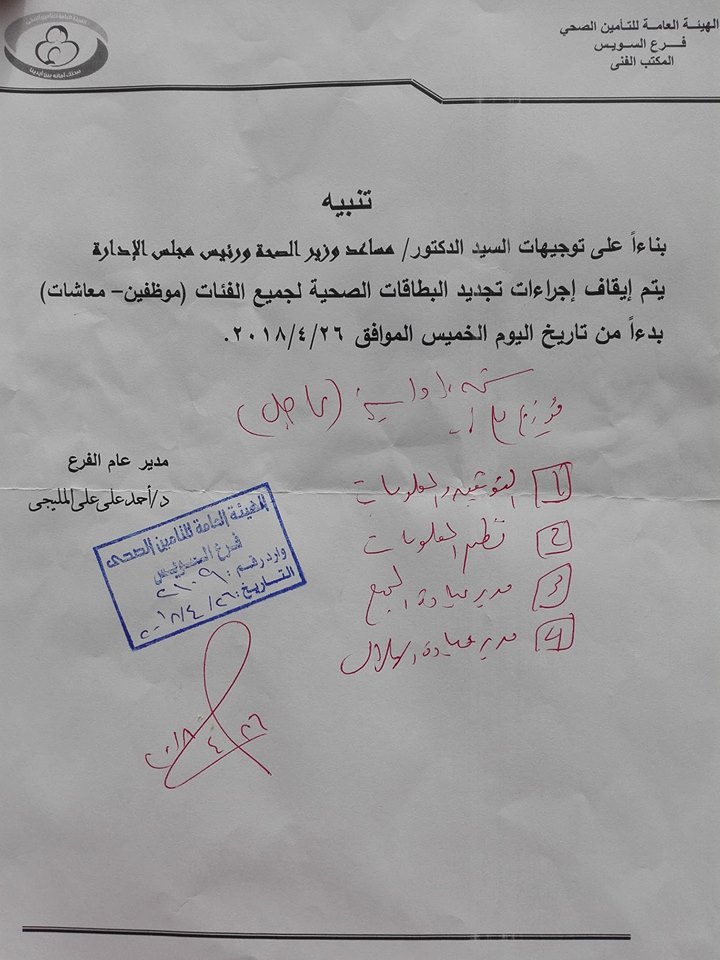 الهيئة العامة للتأمين الصحي
فرع السويس
المكتب الفنى
تنبيه
بناءاً على توجيهات السيد الدكتور/ مساعد وزير الصحة ورئيس مجلس الإدارة
يتم إيقاف إجراءات تجديد البطاقات الصحية لجميع الفئات (موظفين- معاشات)
بدءاً من تاريخ اليوم الخميس الموافق ٢٠١٨/٤/٢٦.
(عاجل)
مدير عام الفرع
د/أحمد على على المليجى
1 والمعلومات
2 نظم المعلومات
3 مدير عيادة المجمع
4 مدير عيادة الهلال
الهيئة العامة للتأمين الصحى
فرع السويس
وارد رقم: ٢١٠٩
التاريخ: ٢٠١٨/٤/٢٦
٢٠١٨/٤/٢٦